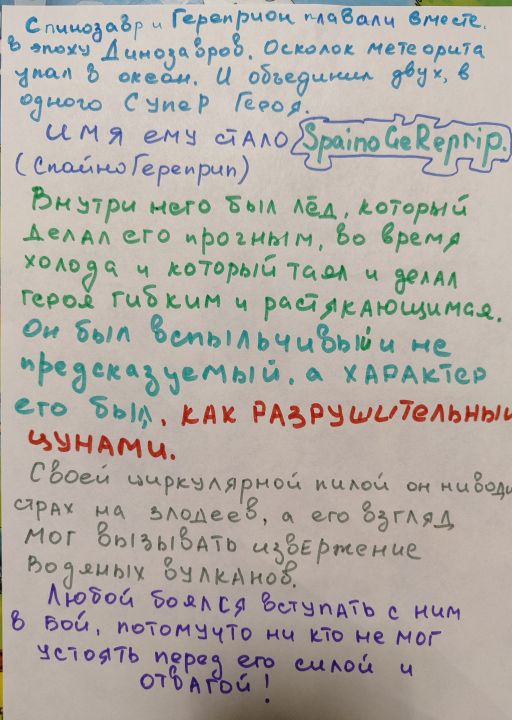 Спинозавр и Гереприон плавали вместе.
в эпоху Динозавров. Осколок метеорита
упал в океан. И объединил двух, в
одного Супер Героя.
Имя ему стало SpainoGeReprip.
(СпайноГереприп)
Внутри него был лёд, который
делал его прочным, во время
холода и который таял и делал
героя гибким и растякающимся.
Он был вспыльчивый и не
предсказуемый, а ХАРАКтер
его был, КАК РАЗРУШИТельный
ЦУНАМИ.
Своей циркулярной пилой он ниводи
страх на злодеев, а его взгляд
мог вызывать извержение
водяных вулканов.
Любой боялся вступать с ним
в бой, потомучто ни кто не мог
устоять перед его силой и
отвагой!